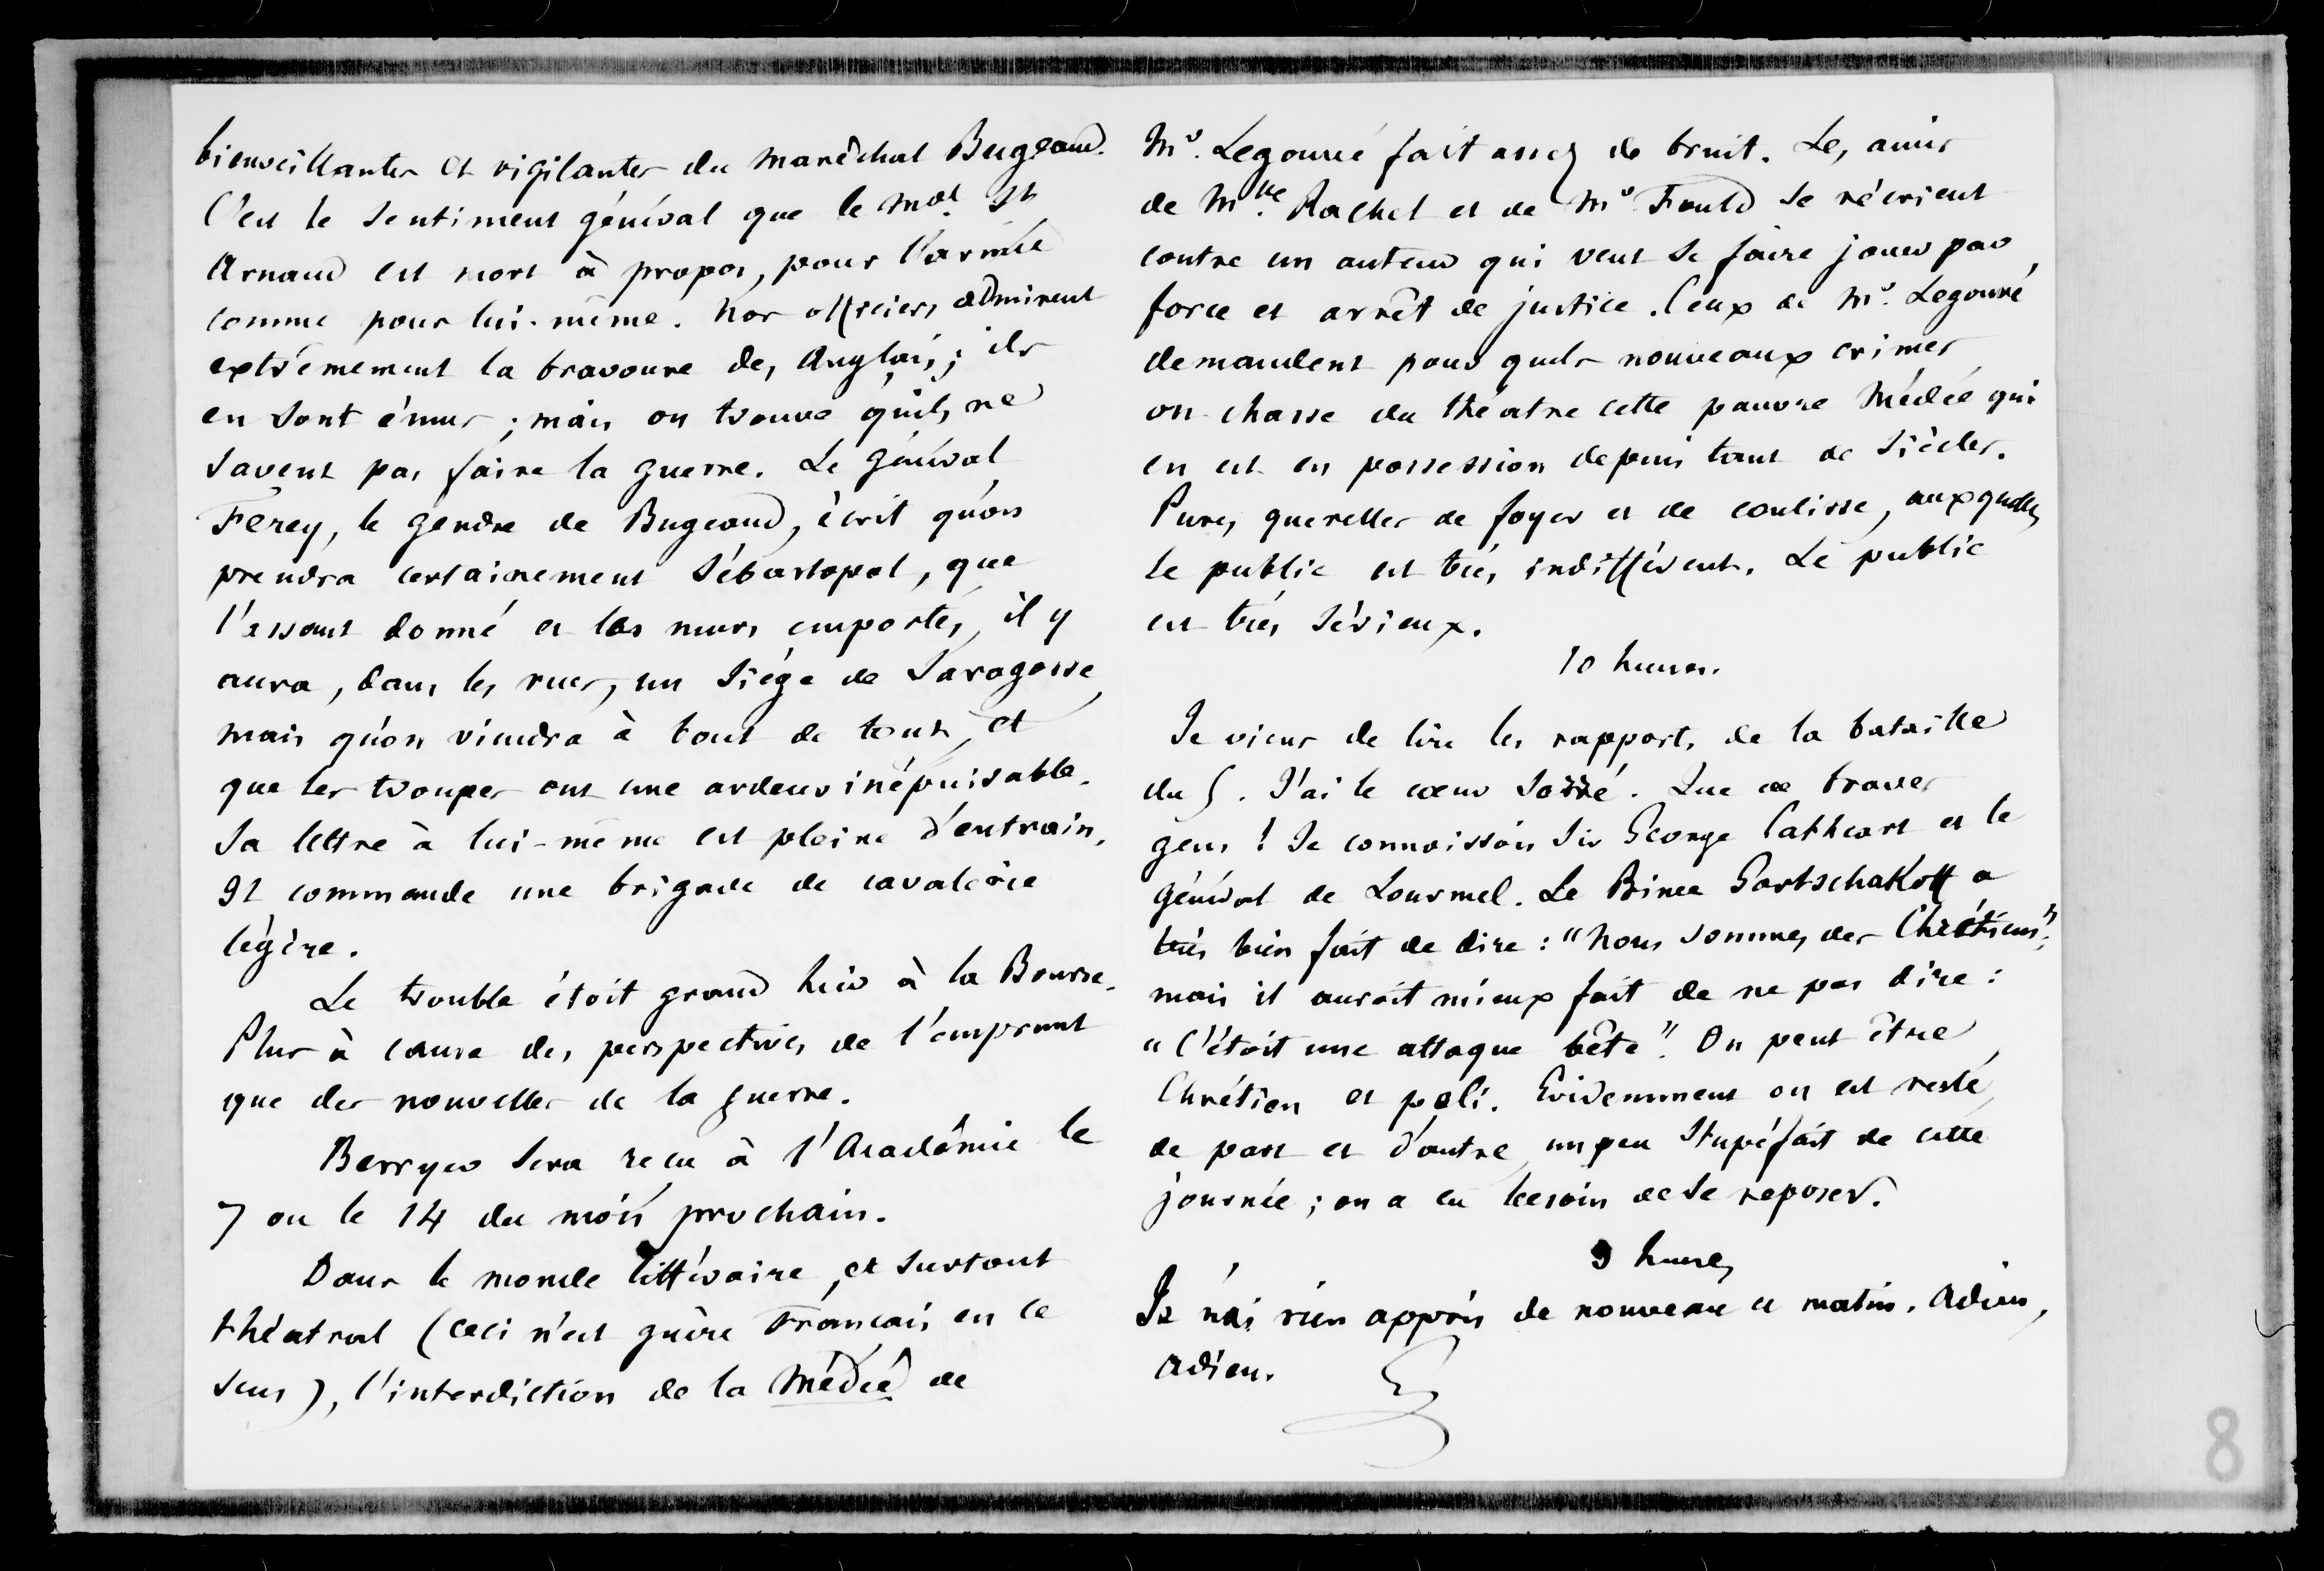 bienveillantes et vigilantes du Maréchal Bugeaud.
C'est le sentiment général que le Mal St
Arnaud est mort à propos, pour l'armée
comme pour lui-même. Nos officiers admirent
extrêmement la bravoure des Anglais ; ils
en sont émus ; mais on trouve qu'ils ne
savent pas faire la guerre. Le Général
Ferey, le gendre de Bugeaud, écrit qu'on
prendra certainement Sébastopol, que
l'assaut donné et les murs emportés, il y
aura, dans les rues, un siège de Saragosse,
mais qu'on viendra à bout de tout, et
que les troupes ont une ardeur inépuisable.
Sa lettre à lui-même est pleine d'entrain.
Il commande une brigade de cavalerie
légère.
Le trouble étoit grand hier à la Bourse.
Plus à cause des perspectives de l'emprunt
que des nouvelles de la guerre.
Berryer sera reçu à l'Académie le
7 ou le 14 du mois prochain.
Dans le monde littéraire, et surtout
théatral (ceci n'est guère Français en ce
sens), l'interdiction de la Médée de
Mr. Legouvé fait assez de bruit. Les amis
de Mlle Rachel et de Mr Fould se récrient
contre un auteur qui veut se faire jouer par
force et arrêt de justice. Ceux de Mr. Legouvé
demandent pour quels nouveaux crimes
on chasse du théatre cette pauvre Médée qui
en est en possession depuis tant de siècles.
Pures querelles de foyer et de coulisse, auxquelles
le public est très indifférent. Le public
est très sérieux.
10 heures.
Je viens de lire les rapports de la bataille
du 5. J'ai le cœur serré. Que de braves
gens ! Je connoissois Sir George Cathcart et le
général de Lourmel. Le Prince Gortschakoff a
très bien fait de dire : "Nous sommes des Chrétiens" ;
mais il auroit mieux fait de ne pas dire :
"C'étoit une attaque bête". On peut être
Chrétien et poli. Evidemment on est resté,
de part et d'autre, un peu stupéfait de cette
journée ; on a eu besoin de se reposer.
9 heures
Je n'ai rien appris de nouveau ce matin. Adieu,
Adieu.
8